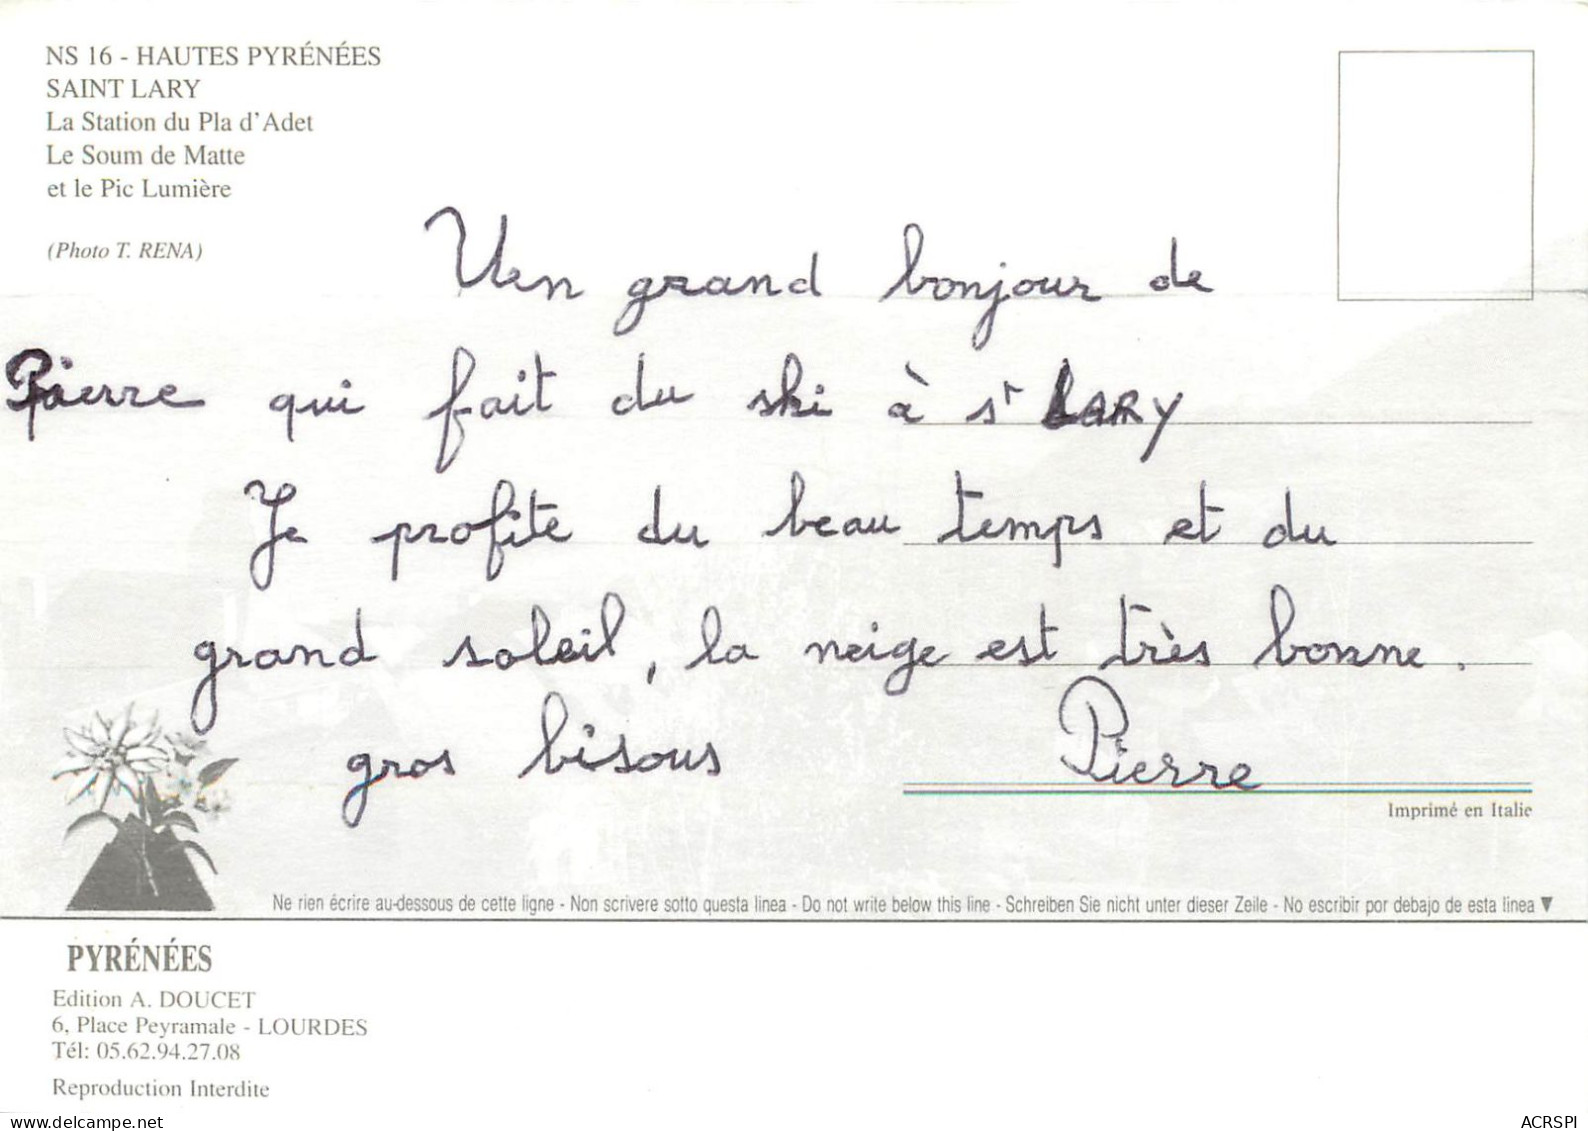 NS 16 - HAUTES PYRÉNÉES
SAINT LARY
La Station du Pla d'Adet
Le Soum de Matte
et le Pic Lumière
(Photo T. RENA)
Un grand bonjour de
Pierre qui fait du ski à St LARY
Je profite du beau temps et du
grand soleil, la neige est très bonne.
gros bisous Pierre
Imprimé en Italie
Ne rien écrire au-dessous de cette ligne - Non scrivere sotto questa linea - Do not write below this line - Schreiben Sie nicht unter dieser Zeile - No escribir por debajo de esta linea ▼
PYRÉNÉES
Edition A. DOUCET
6, Place Peyramale - LOURDES
Tél: 05.62.94.27.08
Reproduction Interdite
www.delcampe.net
ACRSPI